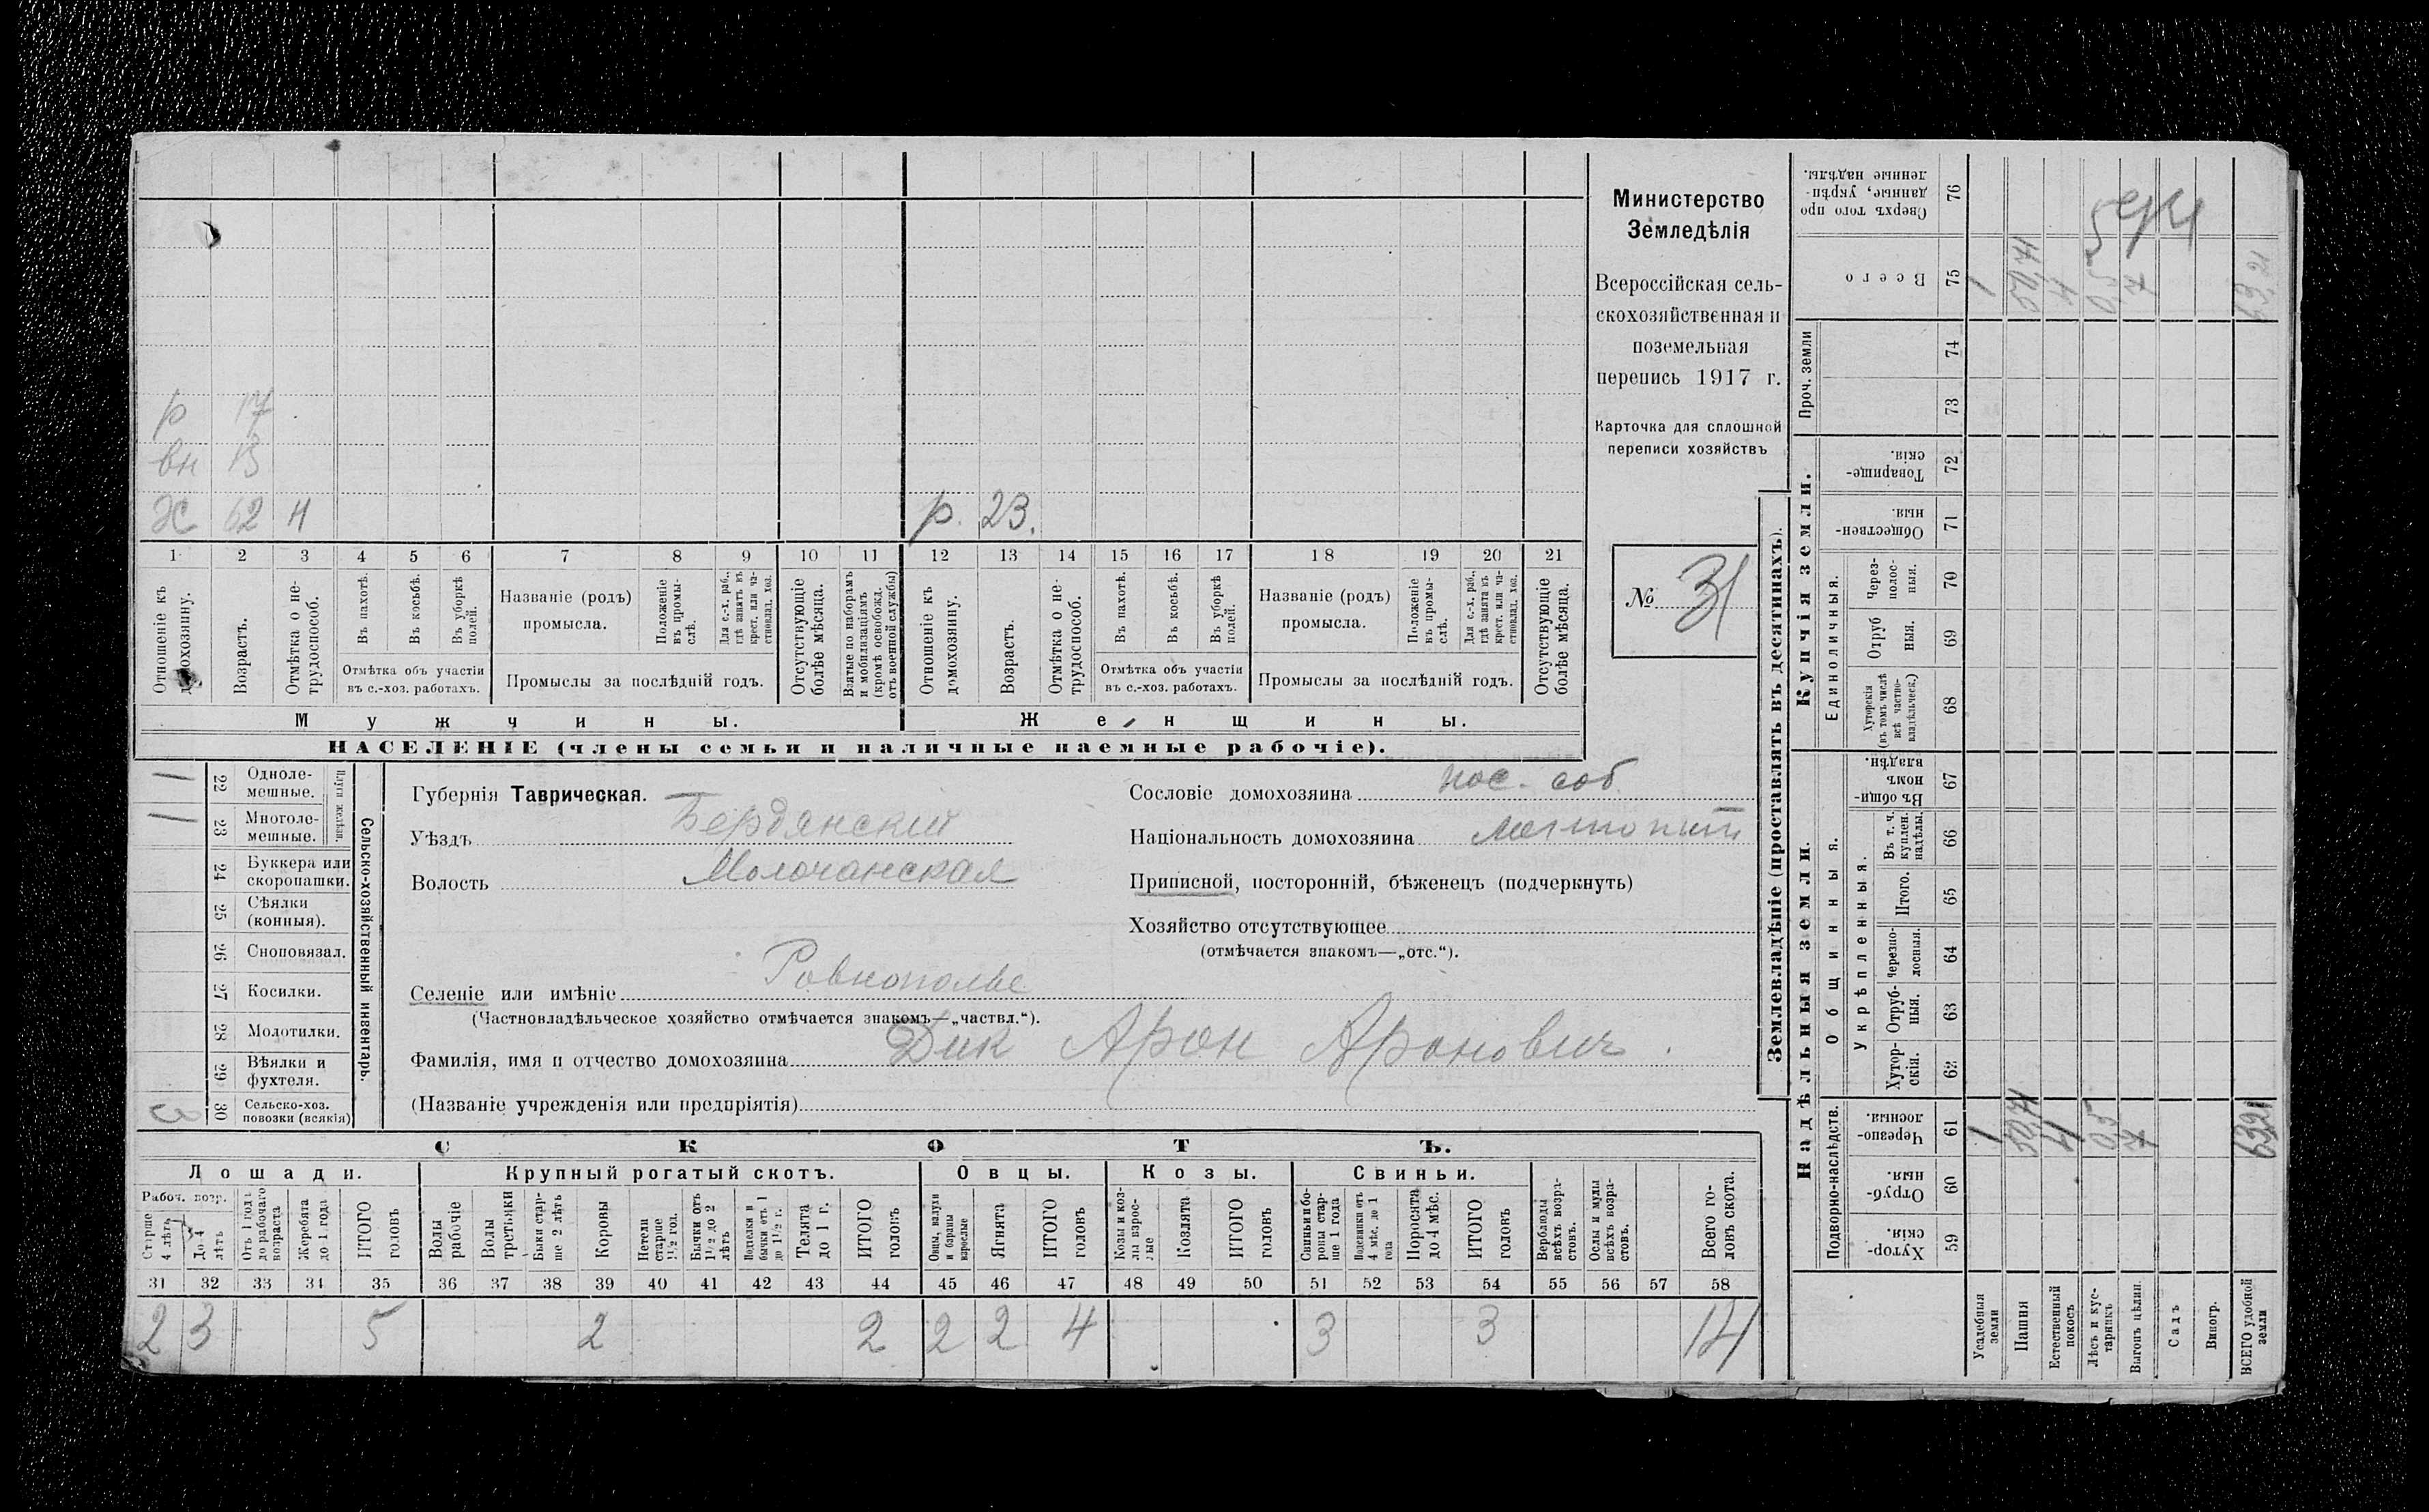 р 17
вн 13
Ж 62 Н
р. 23.
1 2 3 4 5 6 7 8 9 10 11 12 13 14 15 16 17 18 19 20 21
Отношеніе къ домохозяину.
Возрастъ.
Отмѣтка о нетрудоспособ.
Въ пахотѣ.
Въ косьбѣ.
Въ уборкѣ полей.
Отмѣтка объ участіи въ с.-хоз. работахъ.
Названіе (родъ) промысла.
Положеніе въ промыслѣ.
Для с.-х. раб., гдѣ занятъ въ крест. или частновлад. хоз.
Промыслы за послѣдній годъ.
Отсутствующіе болѣе мѣсяца.
Взятые по наборамъ и мобилизаціямъ (кромѣ освобожд. отъ военной службы)
Отношеніе къ домохозяину.
Возрастъ.
Отмѣтка о нетрудоспособ.
Въ пахотѣ.
Въ косьбѣ.
Въ уборкѣ полей.
Отмѣтка объ участіи въ с.-хоз. работахъ.
Названіе (родъ) промысла.
Положеніе въ промыслѣ.
Для с.-х. раб., гдѣ занята въ крест. или частновлад. хоз.
Промыслы за послѣдній годъ.
Отсутствующіе болѣе мѣсяца.
Мужчины.
Женщины.
НАСЕЛЕНІЕ (члены семьи и наличные наемные рабочіе).
Министерство
Земледѣлія
Всероссійская сель-
скохозяйственная и
поземельная
перепись 1917 г.
Карточка для сплошной
переписи хозяйствъ
№ 31
Сельско-хозяйственный инвентарь.
Плуги желѣзн.
22 Одноле-мешные. 1
23 Многоле-мешные. 1
24 Буккера или скоропашки.
25 Сѣялки (конныя).
26 Сноповязал.
27 Косилки.
28 Молотилки.
29 Вѣялки и фухтеля.
30 Сельско-хоз. повозки (всякія) 3
Губернія Таврическая.
Уѣздъ Бердянскій
Волость Молочанская
Селеніе или имѣніе Ровнополье
(Частновладѣльческое хозяйство отмѣчается знакомъ—„частвл.“).
Фамилія, имя и отчество домохозяина Дик Арон Аронович.
(Названіе учрежденія или предпріятія)
Сословіе домохозяина пос. соб.
Національность домохозяина
Приписной, посторонній, бѣженецъ (подчеркнуть)
Хозяйство отсутствующее
(отмѣчается знакомъ—„отс.“).
СКОТЪ.
Лошади. Крупный рогатый скотъ. Овцы. Козы. Свиньи.
Рабоч. возр.
Старше 4 лѣтъ
До 4 лѣтъ
Отъ 1 года до рабочаго возраста
Жеребята до 1 года
ИТОГО головъ
Волы рабочіе
Волы третьяки
Быки старше 2 лѣтъ
Коровы
Нетели старше 1½ год.
Бычки отъ 1½ до 2 лѣтъ
Подтелки и бычки отъ 1 до 1½ г.
Телята до 1 г.
ИТОГО головъ
Овцы, валухи и бараны взрослые
Ягнята
ИТОГО головъ
Козы и козлы взрослые
Козлята
ИТОГО головъ
Свиньи боровы старше 1 года
Подсвинки отъ 4 мѣс. до 1 года
Поросята до 4 мѣс.
ИТОГО головъ
Верблюды всѣхъ возрастовъ.
Ослы и мулы всѣхъ возрастовъ.
Всего головъ скота.
31 32 33 34 35 36 37 38 39 40 41 42 43 44 45 46 47 48 49 50 51 52 53 54 55 56 57 58
2 3 5 2 2 2 2 4 3 3 14
Землевладѣніе (проставлять въ десятинахъ).
Надѣльныя земли.
Купчія земли.
Проч. земли
Подворно-наслѣдств.
Общинныя.
Укрѣпленныя.
Единоличныя.
Хутор-скія. 59
Отруб-ныя. 60
Черезпо-лосныя. 61
Хутор-скія. 62
Отруб-ныя. 63
Черезпо-лосныя. 64
Итого. 65
Въ т. ч. куплен. надѣлы. 66
Въ общинномъ владѣн. 67
Хуторскія (въ томъ числѣ всѣ частно-владѣльческ.) 68
Отрубныя. 69
Через-полос-ныя. 70
Обществен-ныя. 71
Товарище-скія. 72
73
74
Всего 75
Сверхъ того проданные, укрѣпленные надѣлы. 76
Усадебныя земли 1 1
Пашня 50,71 50,71
Естественный покосъ 4 4
Лѣсъ и кустарникъ 0,5 0,5
Выгонъ цѣлин. 7 7
Садъ
Виногр.
ВСЕГО удобной земли 63,21 63,21